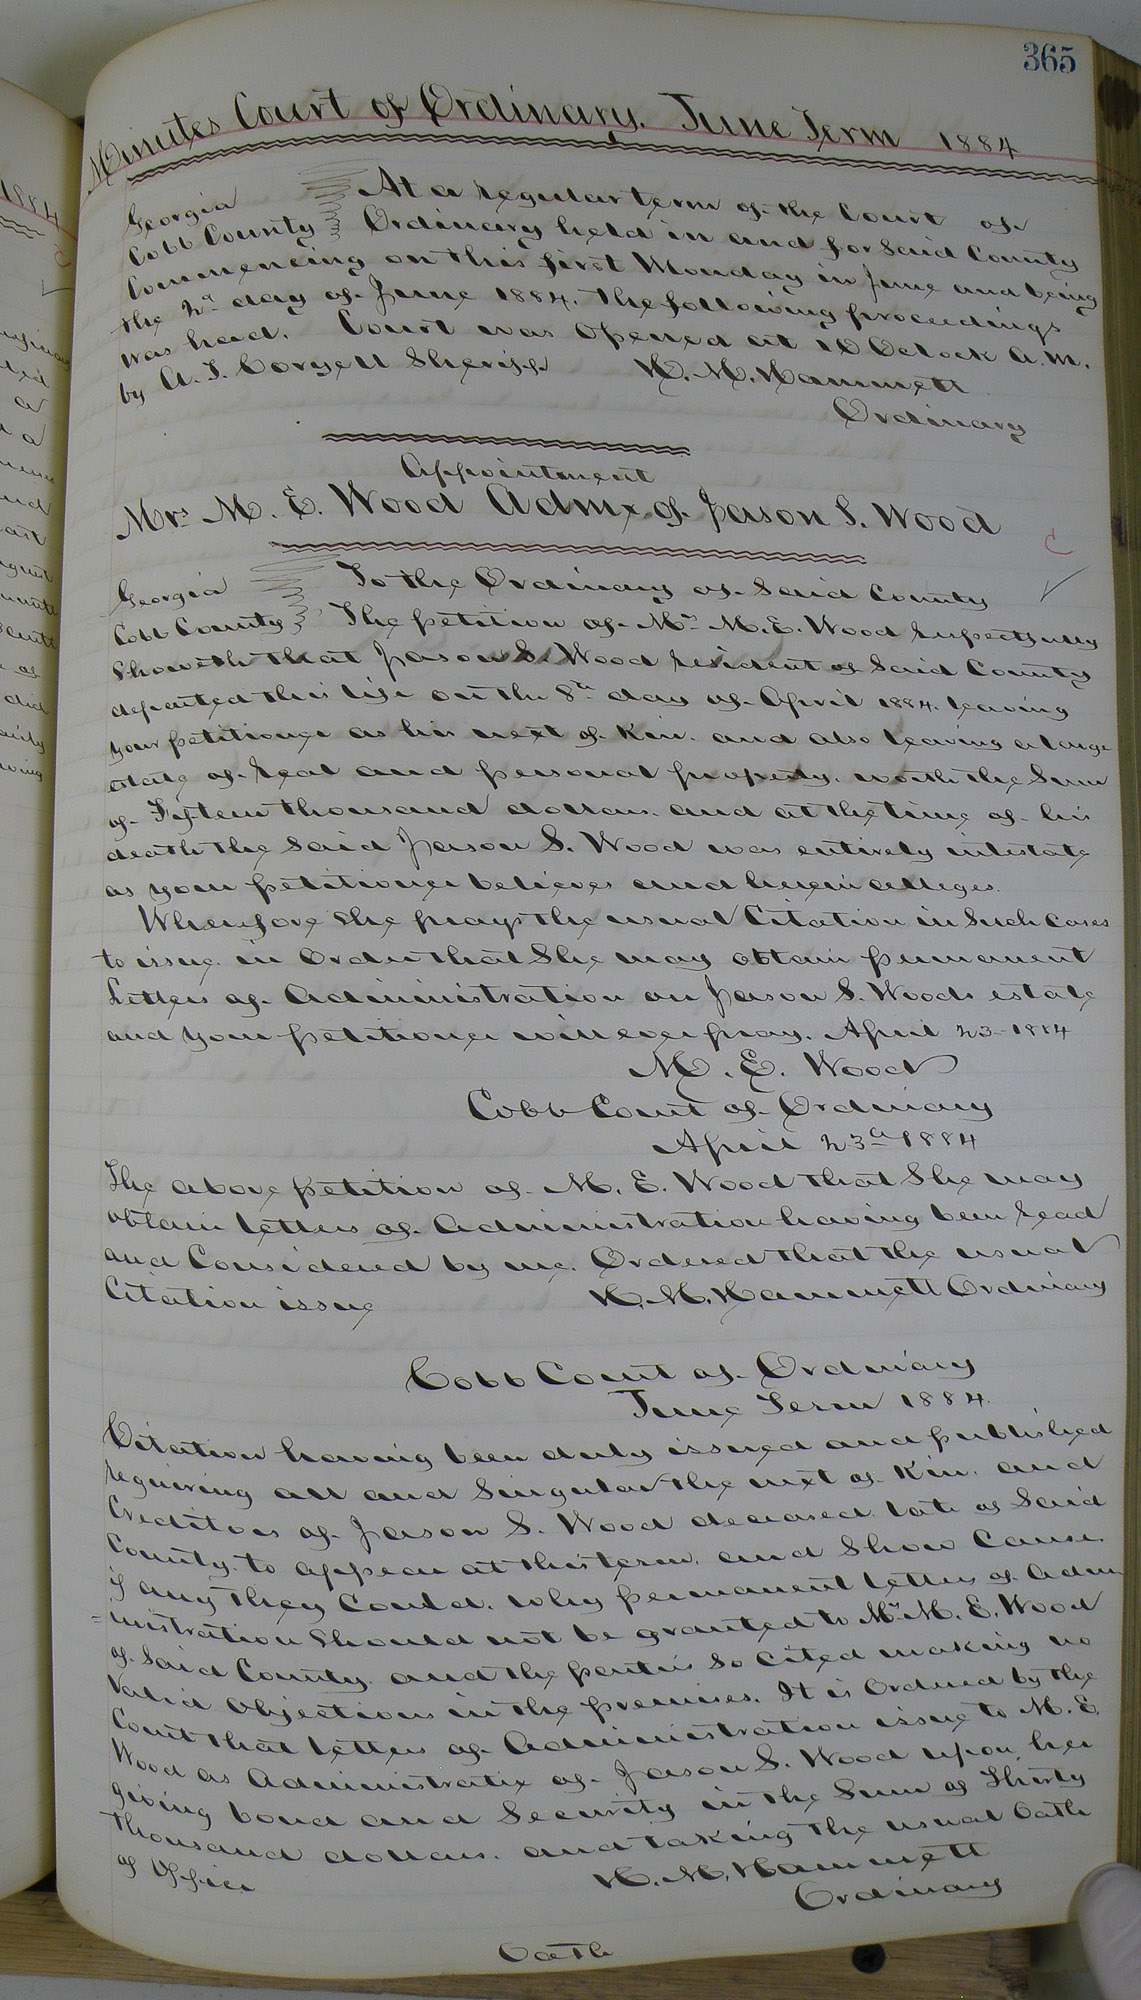 365
Minutes Court of Ordinary. June Term 1884
Georgia } At a regular term of the Court of
Cobb County } Ordinary held in and for Said County
Commencing on this first Monday in June and being
the 2d day of June 1884. The following proceedings
was head. Court was opened at 10 Oclock A.M.
by A. J. Coryell Sheriff H. M. Hammett
Ordinary
Appointment
Mrs M. E. Wood Admx of Jason S. Wood
C
Georgia } To the Ordinary of Said County
Cobb County } The petition of Mrs M. E. Wood respectfully
Showeth that Jason S. Wood resident of Said County
departed this life on the 8th day of April 1884. leaving
your petitioner as his next of Kin. and also leaving a large
estate of real and personal property. worth the Sum
of Fifteen thousand dollars. and at the time of his
death the Said Jason S. Wood was entirely intestate
as your petitioner believes and herein alleges.
Wherefore She prays the usual Citation in Such Cases
to issue in Order that She may obtain permanent
Letters of Administration on Jason S. Woods estate
and your petitioner will ever pray. April 23 1884
M. E. Wood
Cobb Court of Ordinary
April 23d 1884
The above petition of M. E. Wood that She may
obtain letters of Administration having been read
and Considered by me. Ordered that the usual
Citation issue H. M. Hammett Ordinary
Cobb Court of Ordinary
June Term 1884.
Citation having been duly issued and published
requiring all and Singular the next of Kin. and
Creditors of Jason S. Wood deceased late of Said
County. to appear at this term. and Show Cause
if any they Could. why permanent letters of Adm
=inistration Should not be granted to Mrs M. E. Wood
of Said County. and the parties So Cited making no
Valid Objections in the premises. It is Ordered by the
Court that letters of Administration issue to M. E.
Wood as Administratix of Jason S. Wood upon her
giving bond and Security in the Sum of Thirty
thousand dollars. and taking the usual Oath
of Office H. M. Hammett
Ordinary
Oath